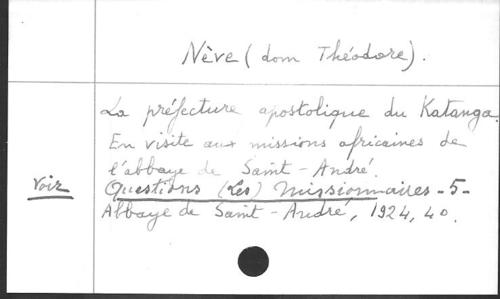 Nève (dom Théodore).
La préfecture apostolique du Katanga.
En visite aux missions africaines de
l'abbaye de Saint-André.
voir Questions (Les) Missionnaires - 5 -
Abbaye de Saint-André, 1924, 40.